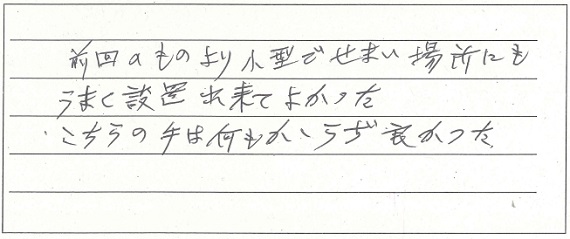 前回のものより小型でせまい場所にも
うまく設置出来てよかった
こちらの手は何もかいらず良かった